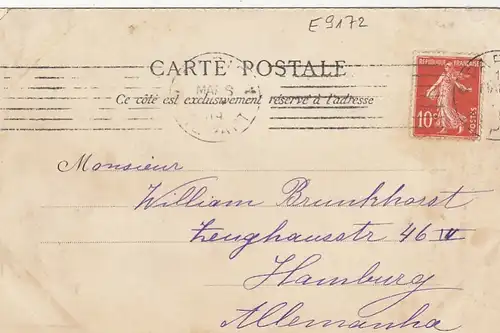 E9172
CARTE POSTALE
Ce côté est exclusivement réservé à l'adresse
RÉPUBLIQUE FRANÇAISE
10c
POSTES
Monsieur
William Brunkhorst
Zeughausstr 46 IV
Hamburg
Allemanha